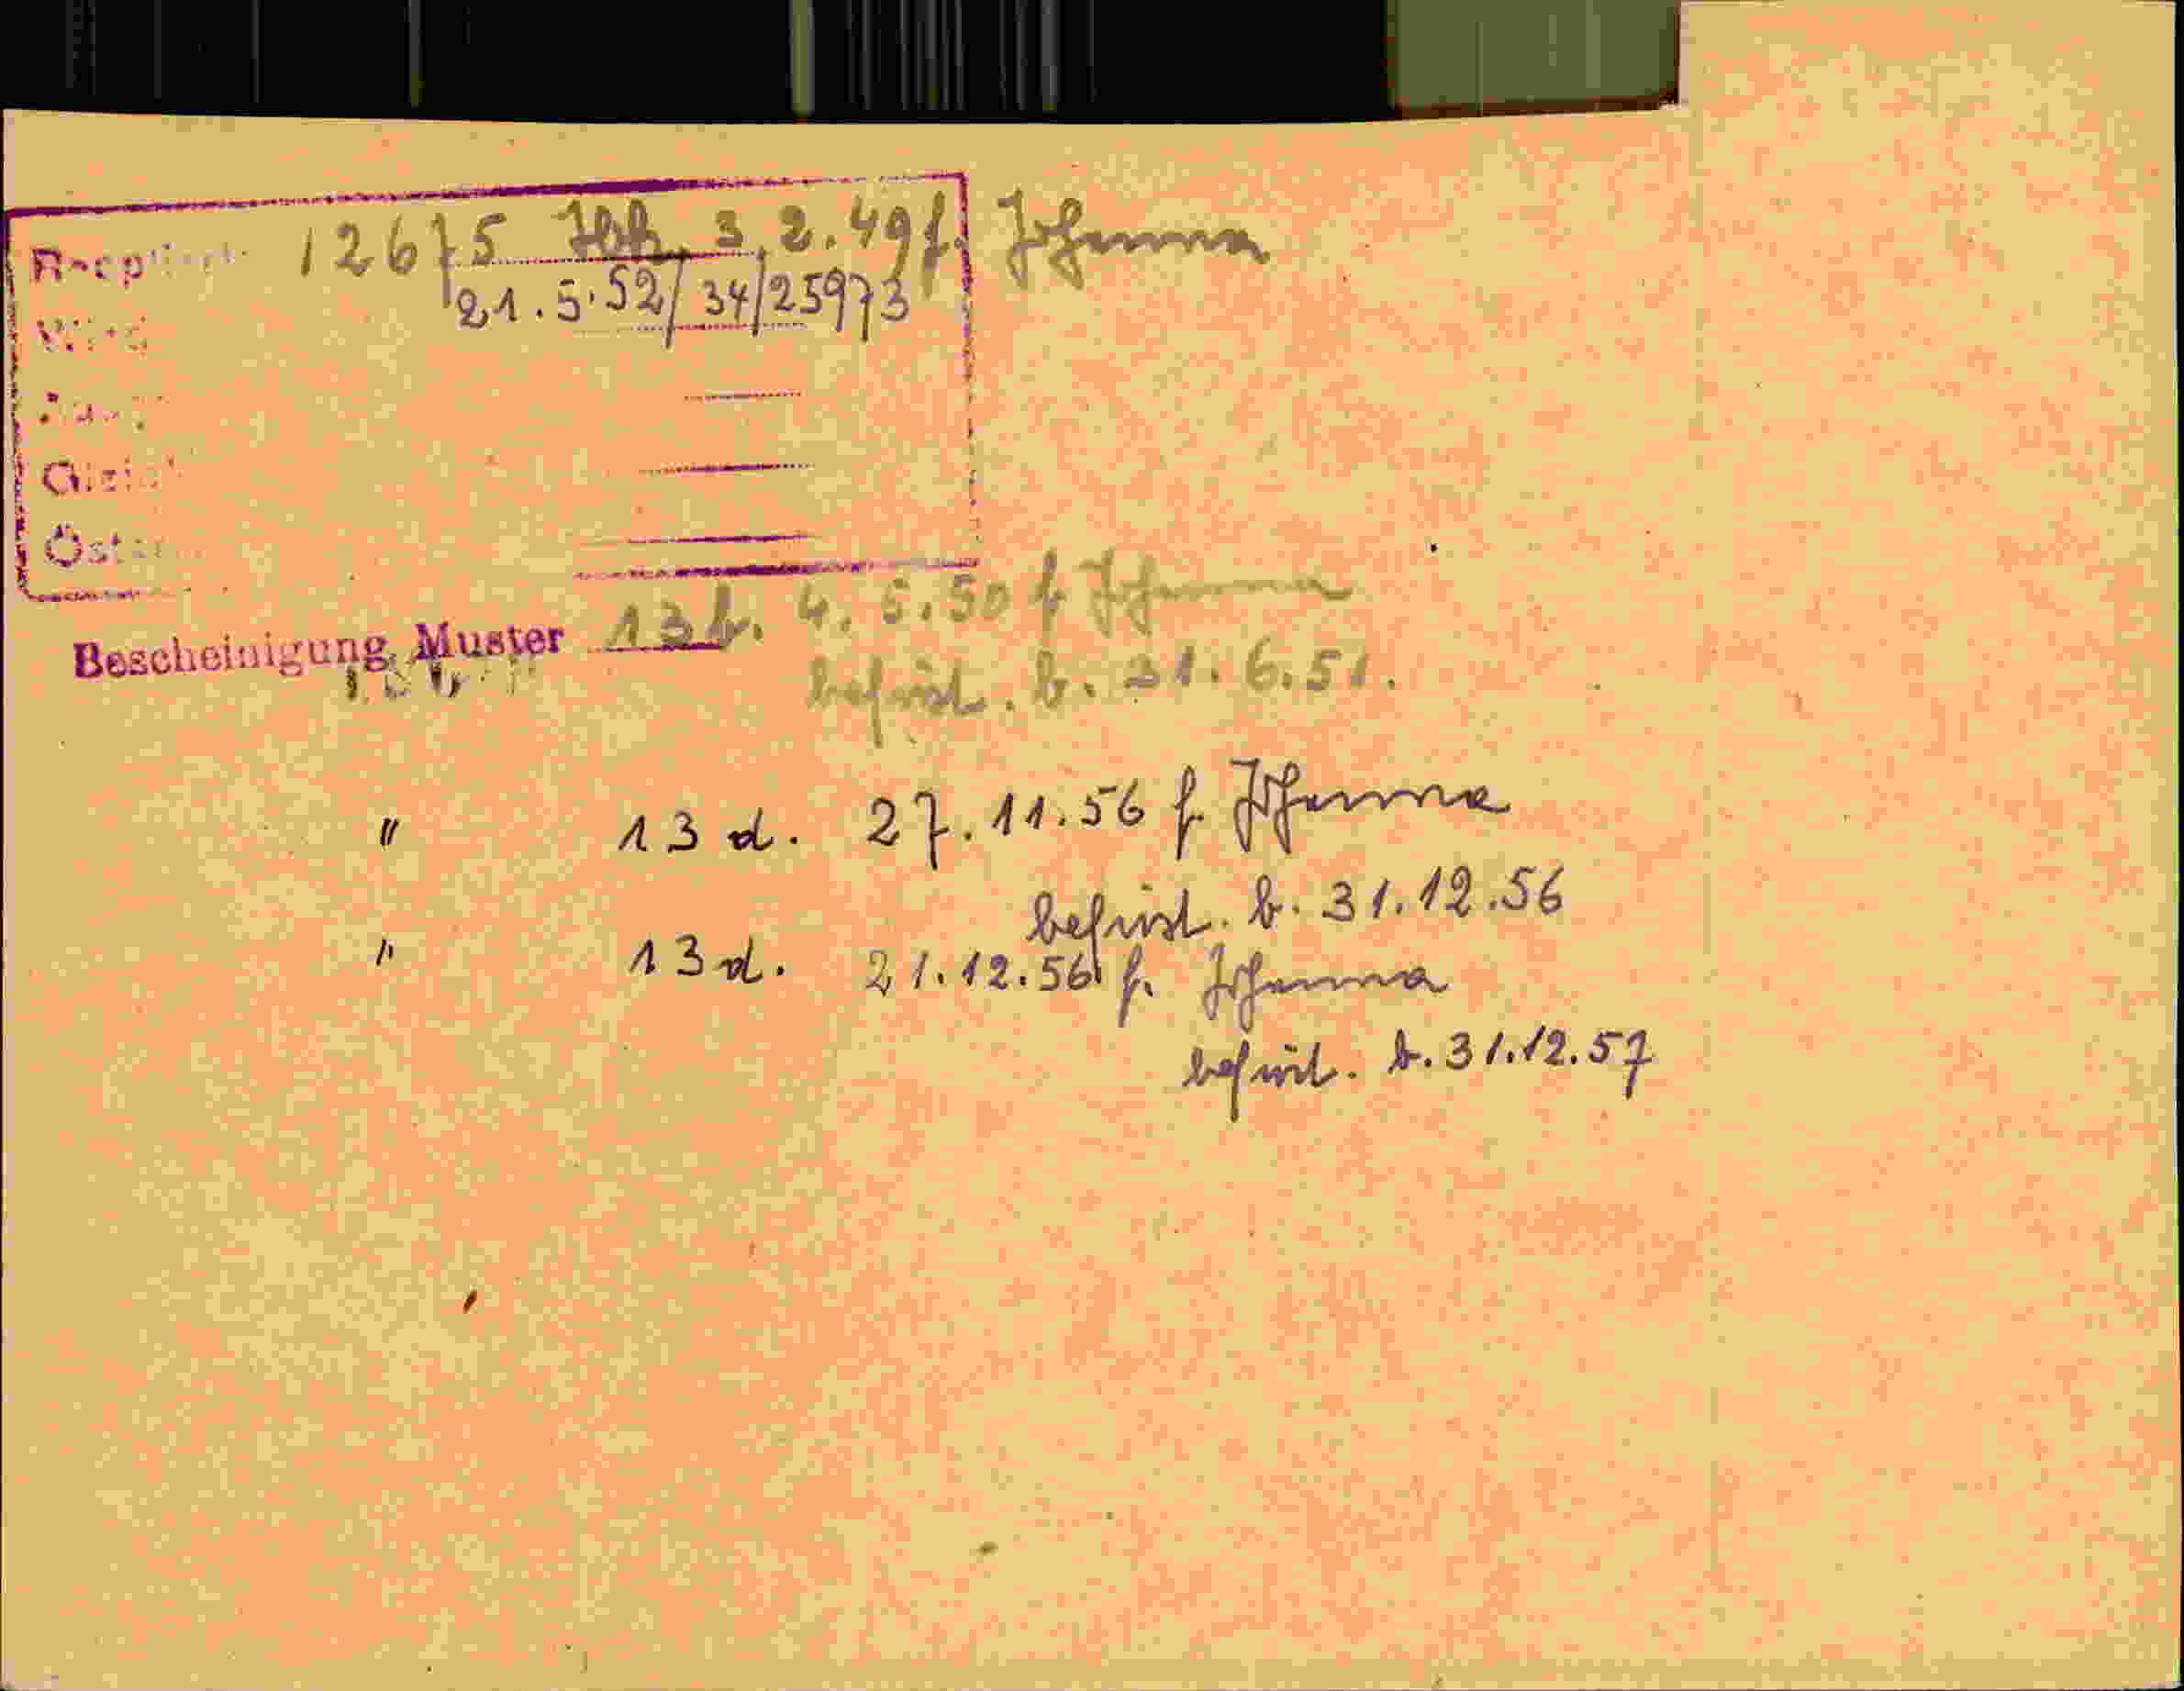 12675 3.2.49 f. Johanna
21.5.52/34/25973
Bescheinigung, Muster 13b. 4.5.50 f Johanna
befrist. b. 31.6.51.
" 13 d. 27.11.56 f. Johanna
befrist. b. 31.12.56
" 13 d. 21.12.56 f. Johanna
befrist. b. 31.12.57